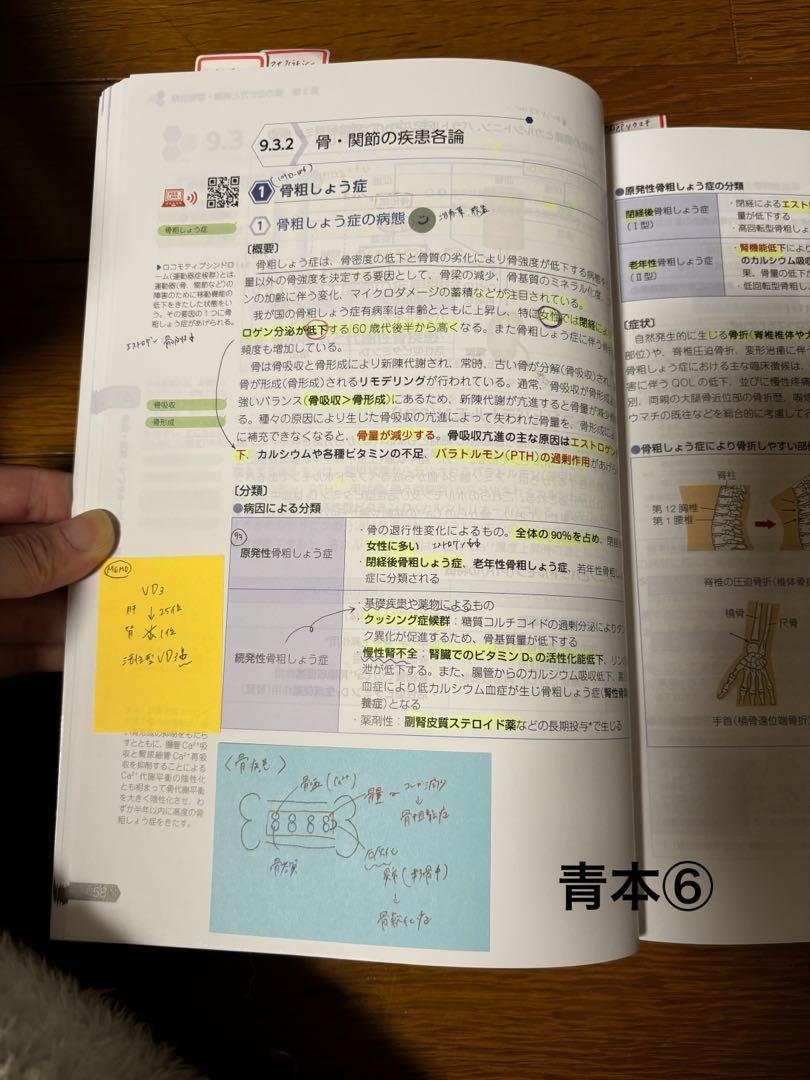 9.3.2 骨・関節の疾患各論
1 骨粗しょう症
1 骨粗しょう症の病態
骨粗しょう症
〔概要〕
骨粗しょう症は、骨密度の低下と骨質の劣化により骨強度が低下する病態
量以外の骨強度を決定する要因として、骨梁の減少、骨基質のミネラル化度
ンの加齢に伴う変化、マイクロダメージの蓄積などが注目されている。
我が国の骨粗しょう症有病率は年齢とともに上昇し、特に女性では閉経
ロゲン分泌が低下する60歳代後半から高くなる。また骨粗しょう症に伴う骨
頻度も増加している。
骨は骨吸収と骨形成により新陳代謝され、常時、古い骨が分解(骨吸収)され
骨が形成(骨形成)されるリモデリングが行われている。通常、骨吸収が骨形成
強いバランス(骨吸収>骨形成)にあるため、新陳代謝が亢進すると骨量が減少
る。種々の原因により生じた骨吸収の亢進によって失われた骨量を、骨形成に
に補充できなくなると、骨量が減少する。骨吸収亢進の主な原因はエストロゲン
下、カルシウムや各種ビタミンの不足、パラトルモン(PTH)の過剰作用があげら
▶ロコモティブシンドロ
ーム(運動器症候群)とは、
運動器(骨、関節など)の
障害のために移動機能の
低下をきたした状態をい
う。その要因の1つに骨
粗しょう症があげられる。
骨吸収
骨形成
〔分類〕
●病因による分類
99
原発性骨粗しょう症
・骨の退行性変化によるもの。全体の90%を占め、閉経
女性に多い
・閉経後骨粗しょう症、老年性骨粗しょう症、若年性骨粗し
症に分類される
続発性骨粗しょう症
・基礎疾患や薬物によるもの
クッシング症候群：糖質コルチコイドの過剰分泌によりタン
ク異化が促進するため、骨基質量が低下する
・慢性腎不全：腎臓でのビタミンD₃の活性化能低下、リン
泄が低下する。また、腸管からのカルシウム吸収低下、高
血症により低カルシウム血症が生じ骨粗しょう症(腎性骨
養症)となる
・薬剤性：副腎皮質ステロイド薬などの長期投与*で生じる
MEMO
VD3
肝 ↓ 25位
腎 1位
活性型VD3
とともに、腸管Ca²⁺吸
収と腎尿細管Ca²⁺再吸
収を抑制することによる
Ca²⁺代謝平衡の陰性化
とも相まって骨代謝平衡
を大きく陰性化させ、わ
ずか半年以内に高度の骨
粗しょう症をきたす。
骨量
骨粗鬆症
骨基質
骨軟化症
58
●原発性骨粗しょう症の分類
閉経後骨粗しょう症
(Ⅰ型)
・閉経によるエスト
量が低下する
・高回転型骨粗し
老年性骨粗しょう症
(Ⅱ型)
・腎機能低下により
のカルシウム吸収
果、骨量の低下が
・低回転型骨粗し
〔症状〕
自然発生的に生じる骨折(脊椎椎体や大
部位)や、脊椎圧迫骨折、変形治癒に伴
骨粗しょう症における主な臨床徴候は、
害に伴うQOLの低下、並びに慢性疼痛
別、両親の大腿骨近位部の骨折歴、喫煙
ウマチの既往などを総合的に考慮して
●骨粗しょう症により骨折しやすい部位
脊柱
第12胸椎
第1腰椎
脊椎の圧迫骨折(椎体骨折
橈骨
尺骨
手首(橈骨遠位端骨折)
青本⑥